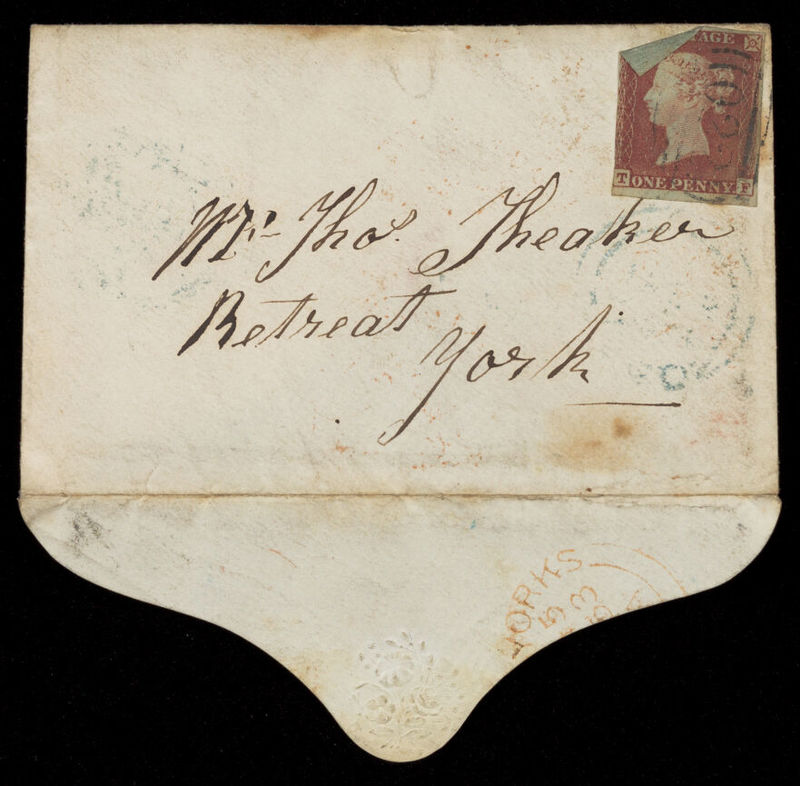 TAGE
T ONE PENNY F
Mr. Thos. Theaker
Retreat
York
YORKS